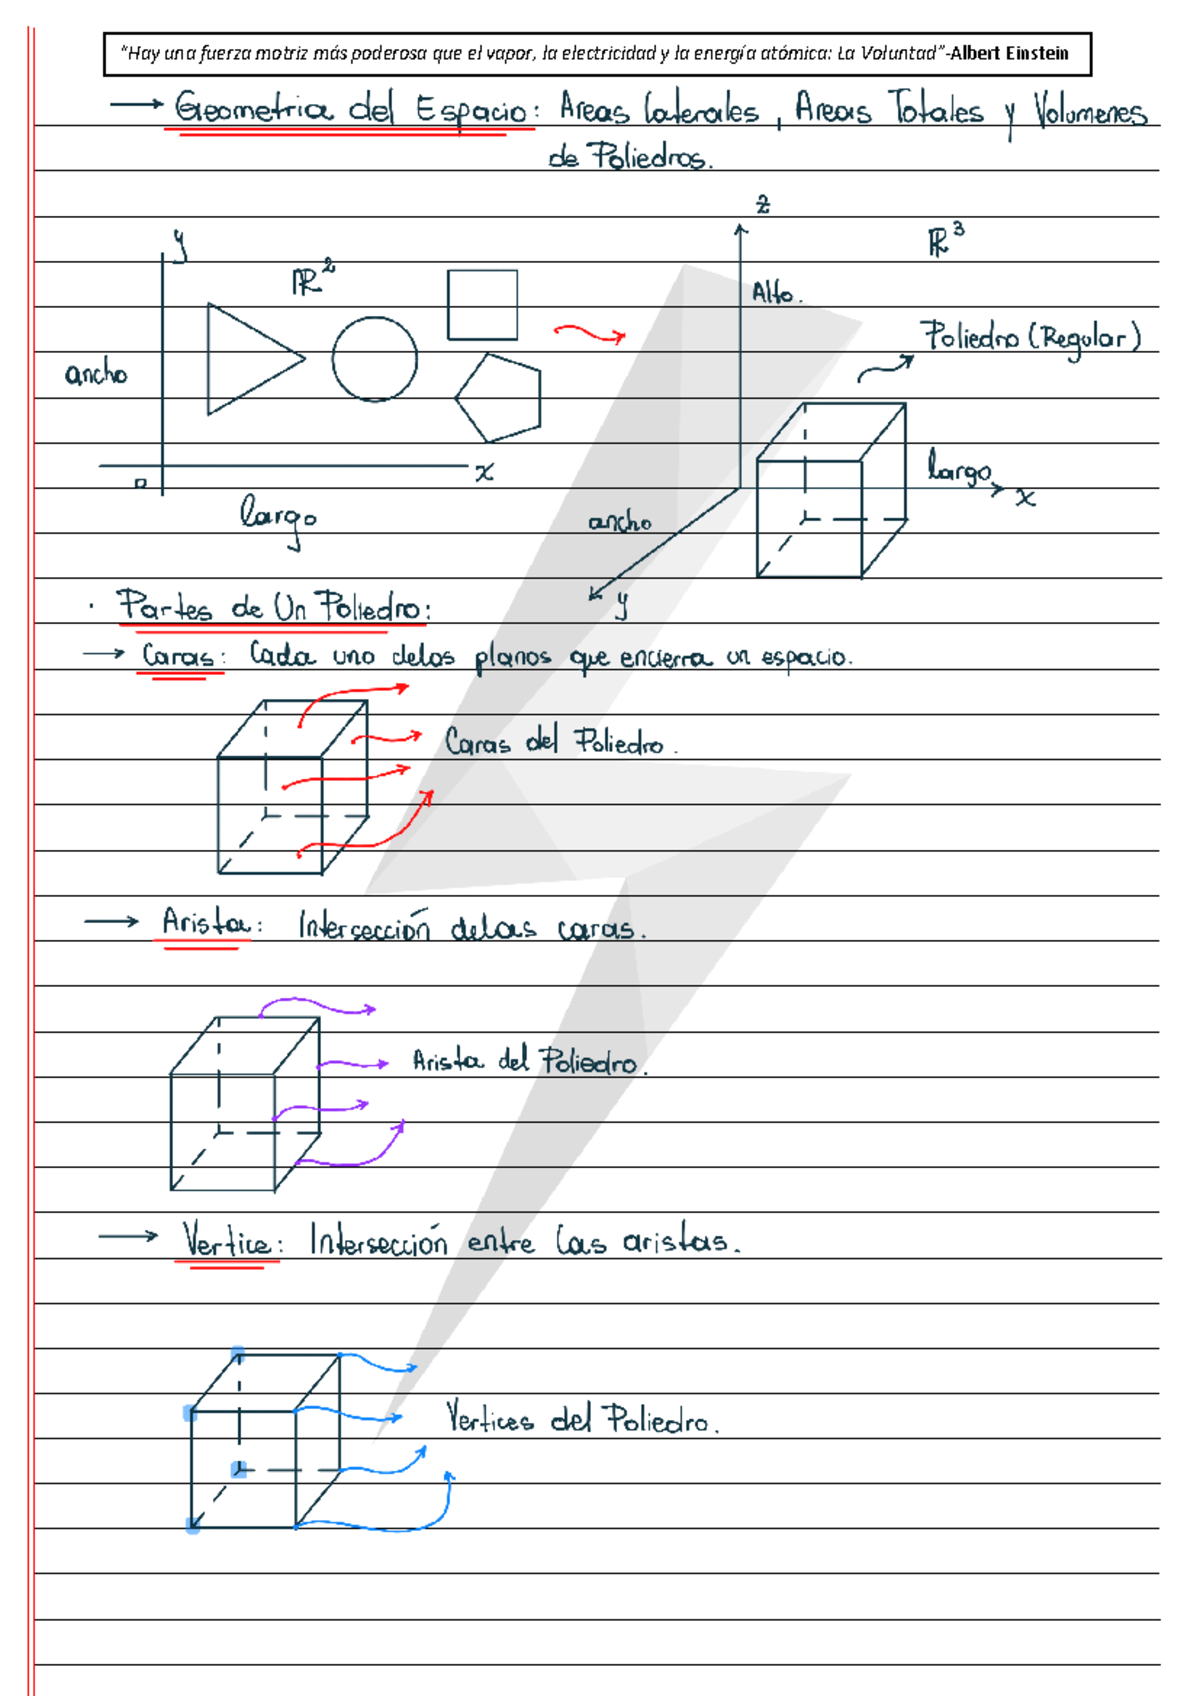 "Hay una fuerza motriz más poderosa que el vapor, la electricidad y la energía atómica: La Voluntad"-Albert Einstein
→ Geometria del Espacio: Areas laterales, Areas Totales y Volumenes
de Poliedros.
z
y
ℝ²
ℝ³
Alto.
Poliedro (Regular)
ancho
x
largo
x
o
largo
ancho
y
· Partes de Un Poliedro:
→ Caras: Cada uno delos planos que encierra un espacio.
Caras del Poliedro.
→ Arista: Intersección delas caras.
Arista del Poliedro.
→ Vertice: Intersección entre las aristas.
Vertices del Poliedro.